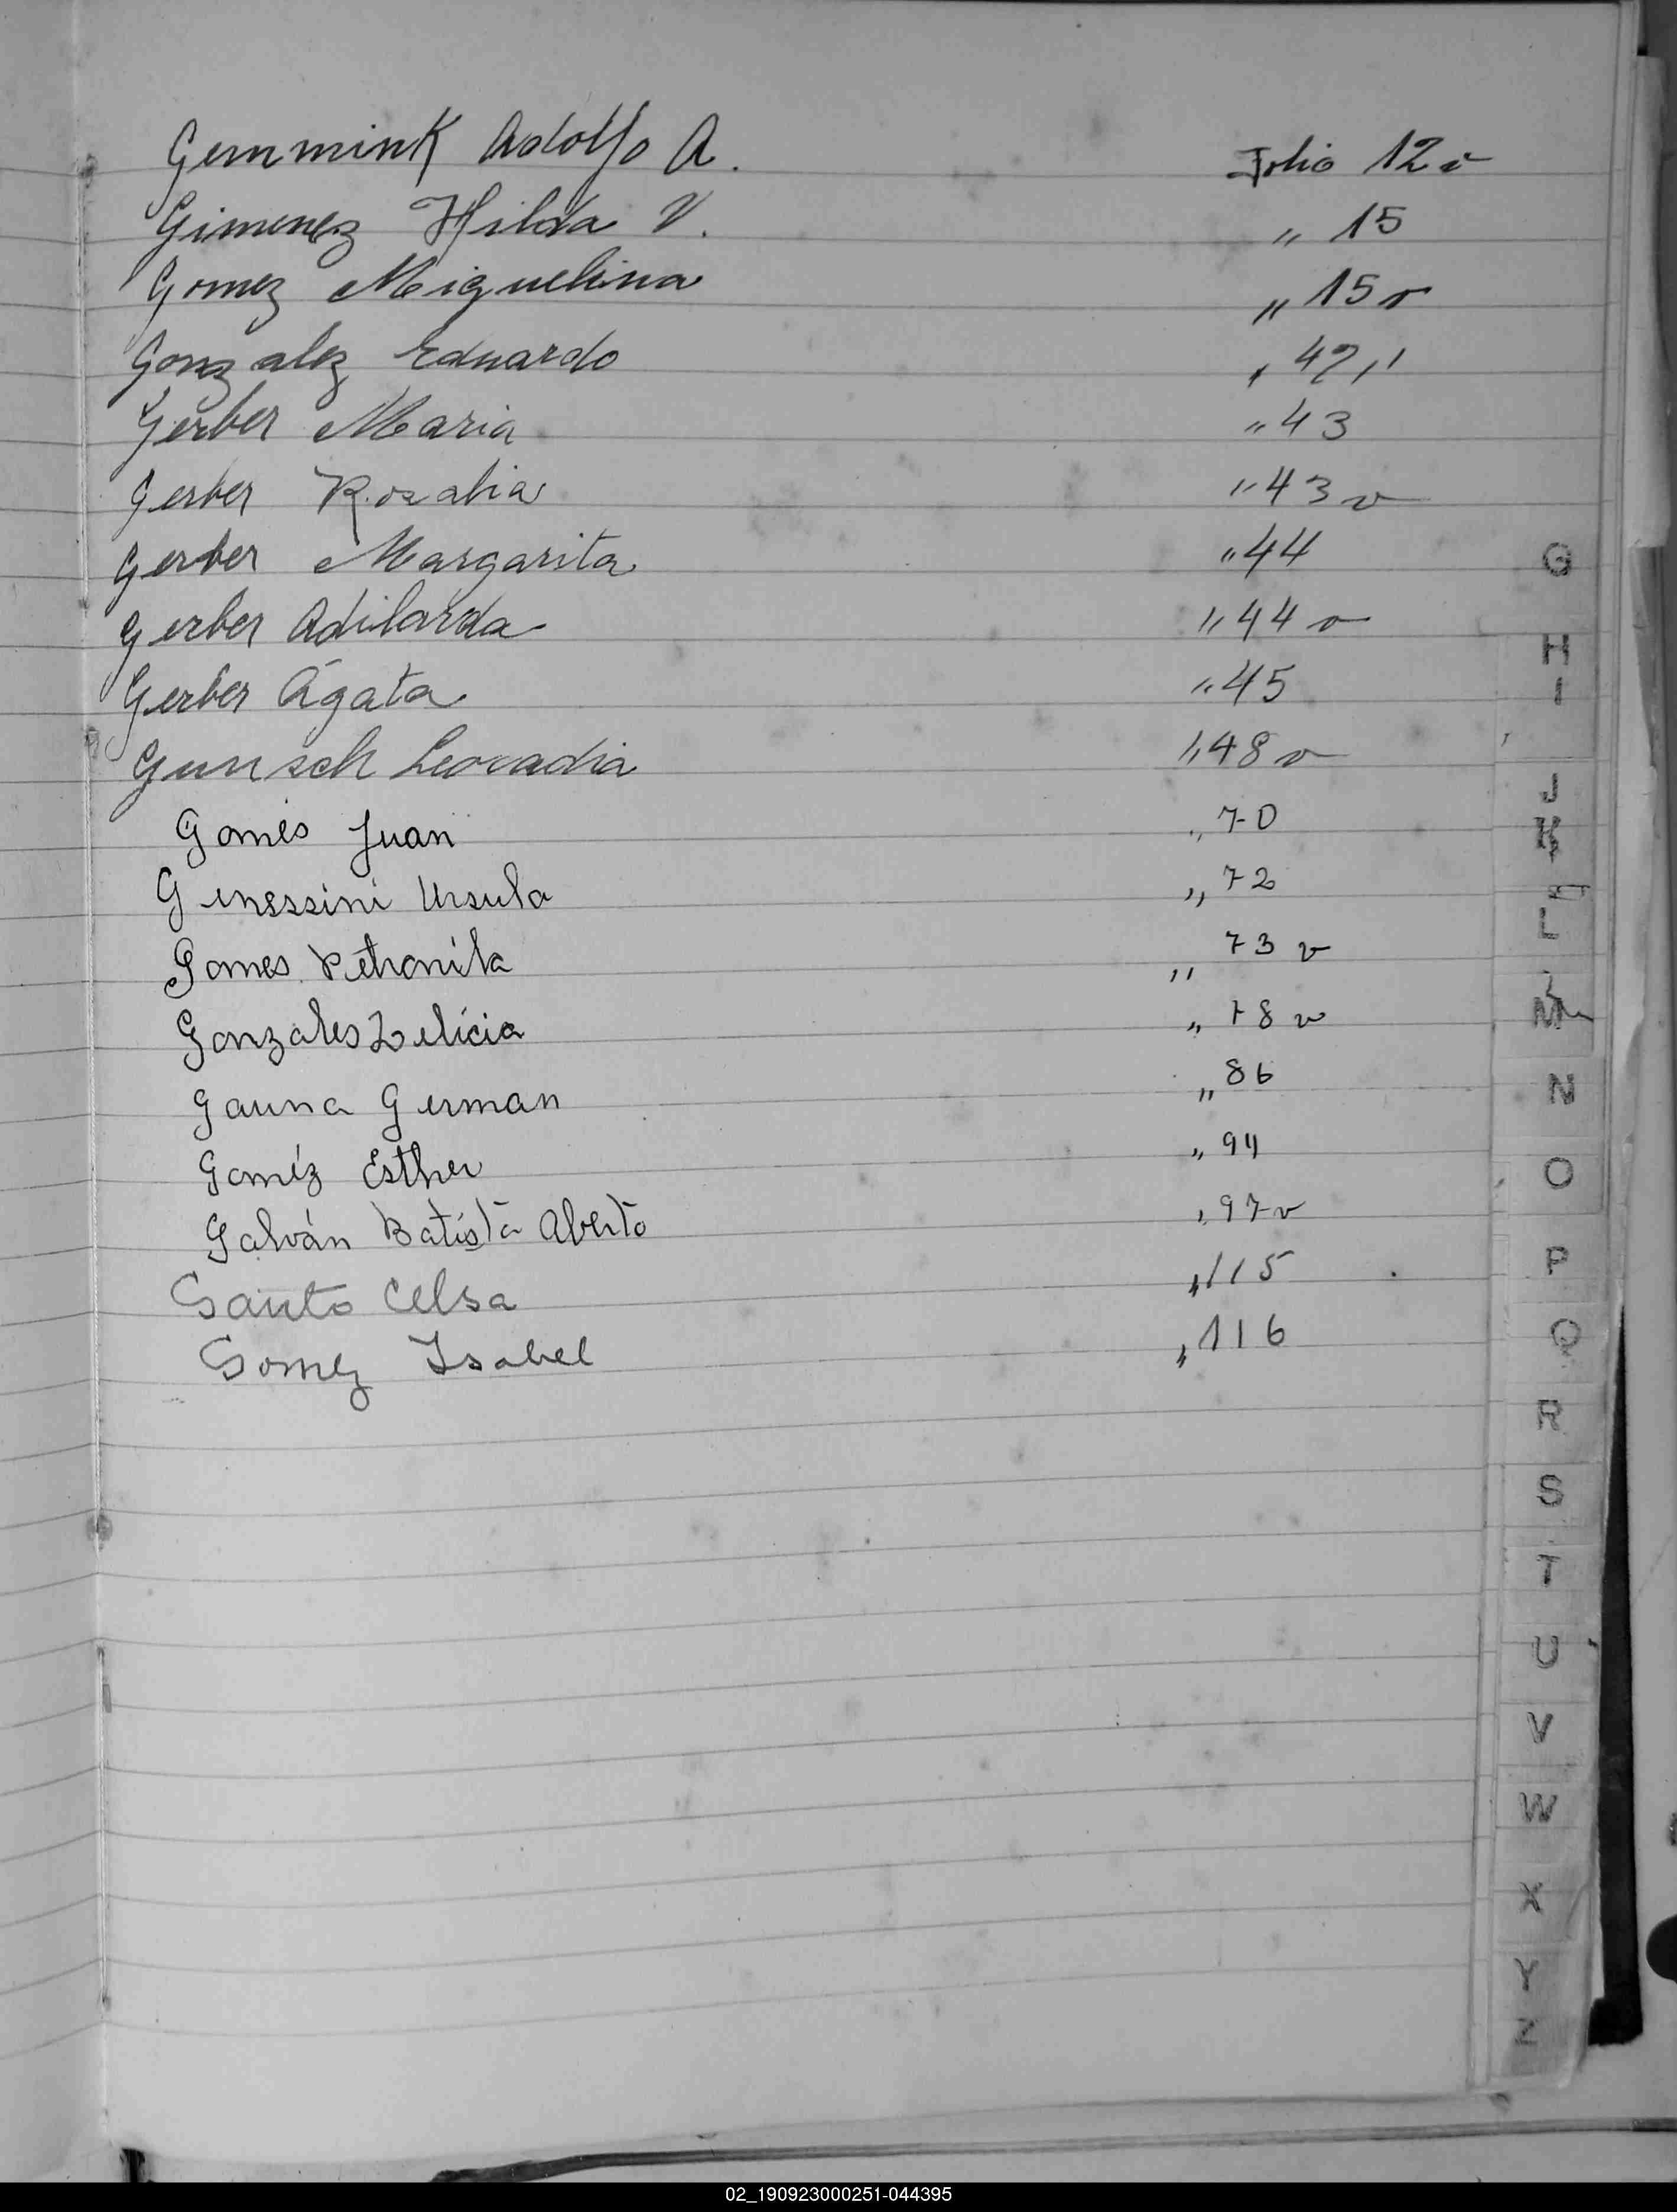 Gemmink Adolfo A. Folio 12 v
Gimenez Hilda V. " 15
Gomez Miguelina " 15 v
Gonzalez Eduardo " 42
Gerber Maria " 43
Gerber Rozalia " 43 v
Gerber Margarita " 44
Gerber Adilarda " 44 v
Gerber Ágata " 45
Gunsch Leocadia " 48 v
Gomes Juan " 70
Ginessini Ursula " 72
Gomes Petronila " 73 v
Gonzales Zelicia " 78 v
Gauna German " 86
Goméz Esther " 94
Galván Batista Alberto " 97 v
Gauto Celsa " 115
Gomez Isabel " 116
G
H
I
J
K
L
M
N
O
P
Q
R
S
T
U
V
W
X
Y
Z
02_190923000251-044395